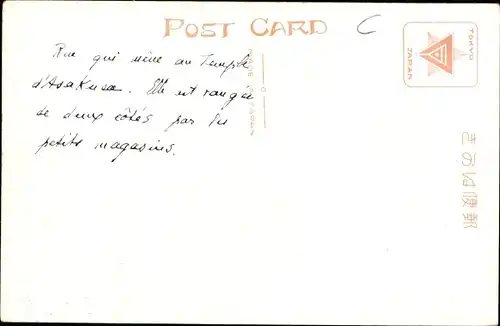 POST CARD
C
TOKYO
JAPAN
Rue qui mène au Temple
d'Asakusa. Elle est rangée
de deux côtés par des
petits magasins.
MADE IN JAPAN
きかは便郵